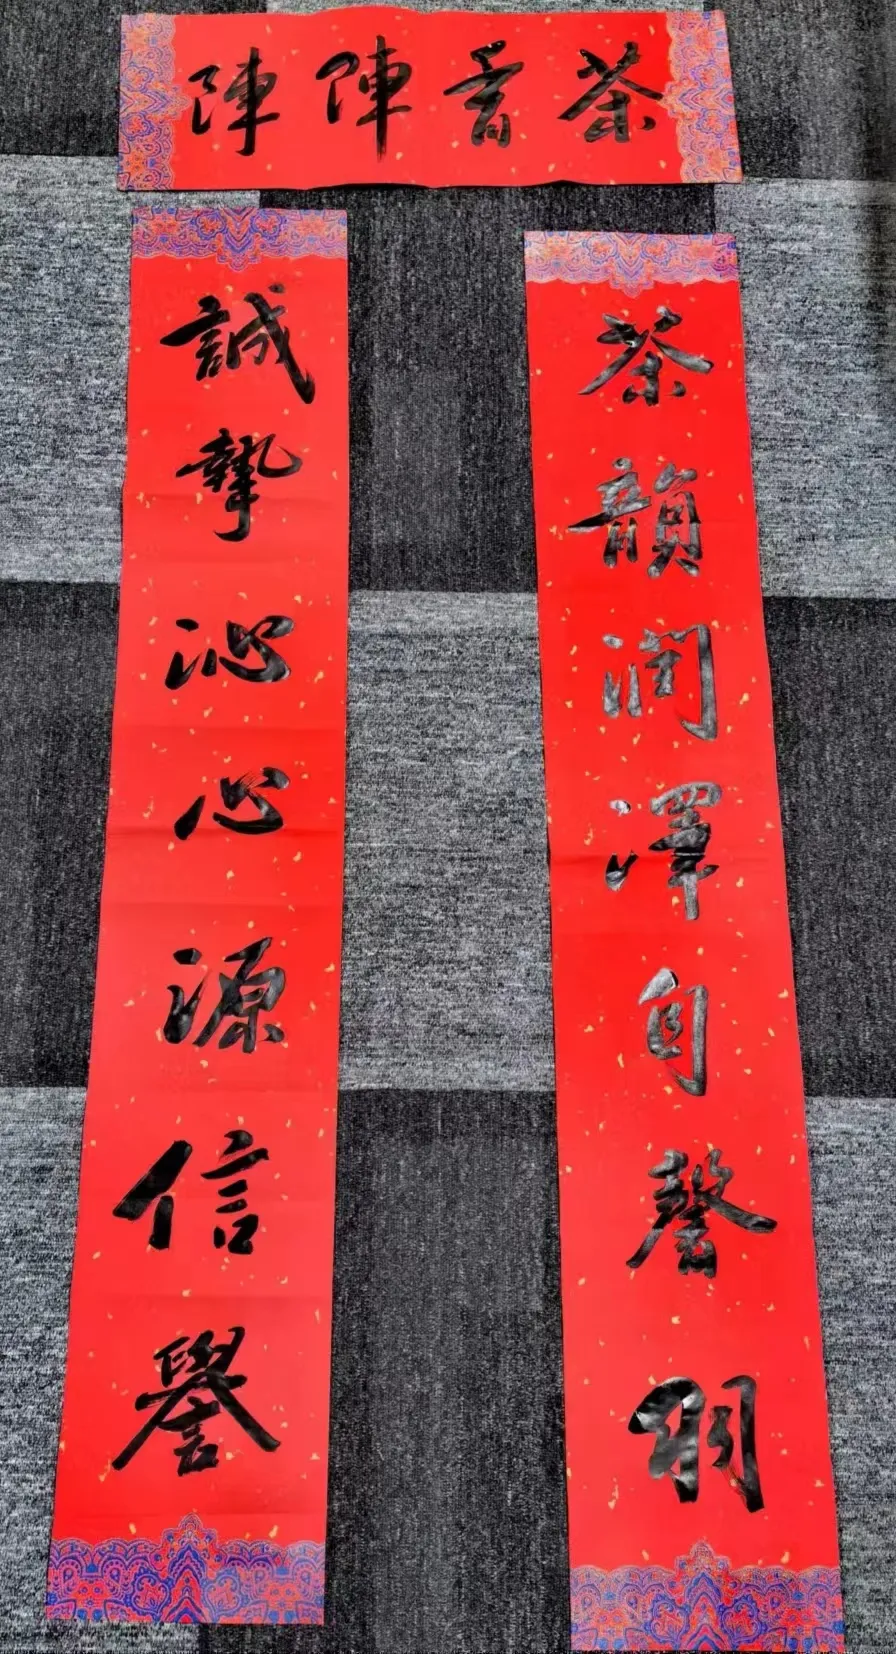 茶香陣陣
茶韻潤澤自馨羽
誠摯沁心源信譽